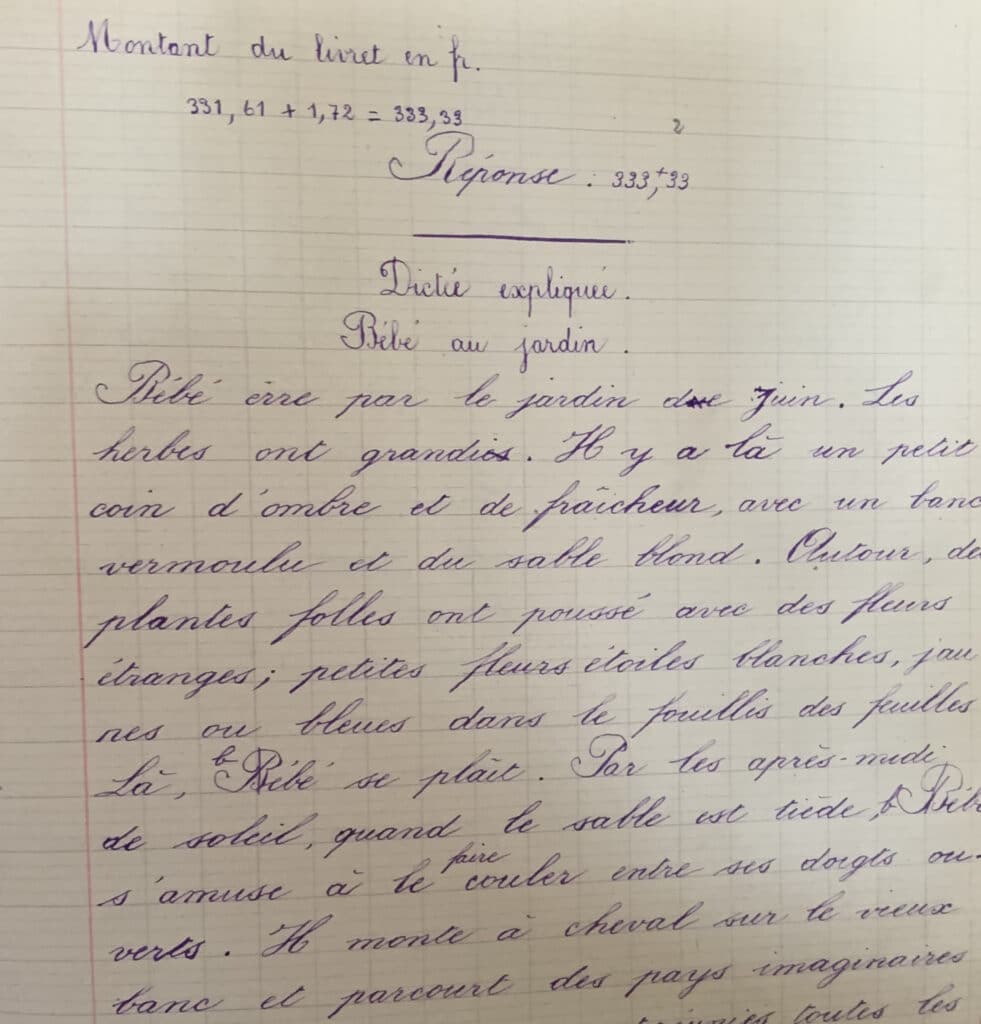 Montant du livret en fr.
331,61 + 1,72 = 333,33
2
Réponse : 333,33
Dictée expliquée.
Bébé au jardin.
Bébé erre par le jardin de Juin. Les
herbes ont grandies. Il y a là un petit
coin d'ombre et de fraîcheur, avec un banc
vermoulu et du sable blond. Autour, de
plantes folles ont poussé avec des fleurs
étranges; petites fleurs étoiles blanches, jau
nes ou bleues dans le fouillis des feuilles
Là, b Bébé se plaît. Par les après-midi
de soleil, quand le sable est tiède, b Bébé
faire
s'amuse à le couler entre ses doigts ou-
verts. Il monte à cheval sur le vieux
banc et parcourt des pays imaginaires
toutes les